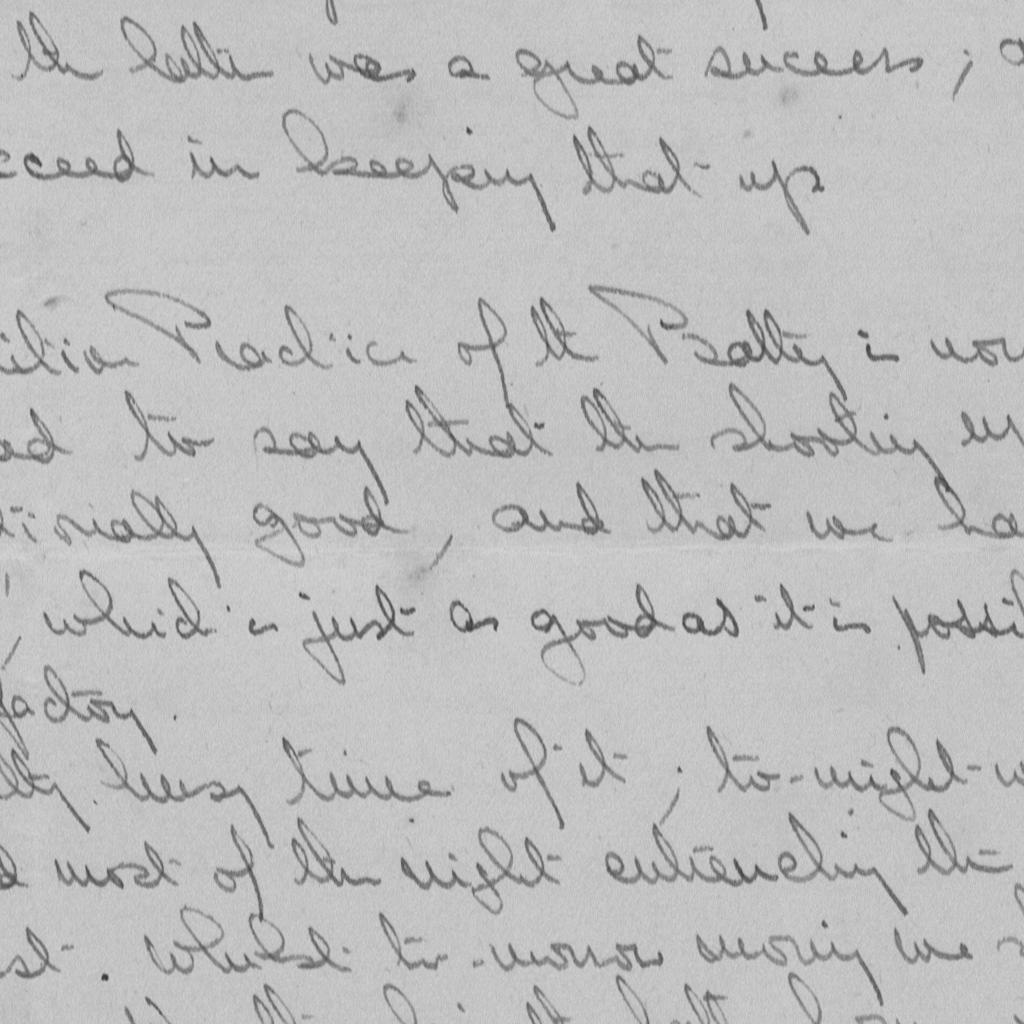 the latter was a great success; a
cceed in keeping that up
ition Practice of the Battery is now
ad to say that the shooting
tionally good, and that we ha
, which is just as good as it is possi
factory.
busy time of it; to-night w
d most of the night entrenching the
st. Whilst to-morrow morning we